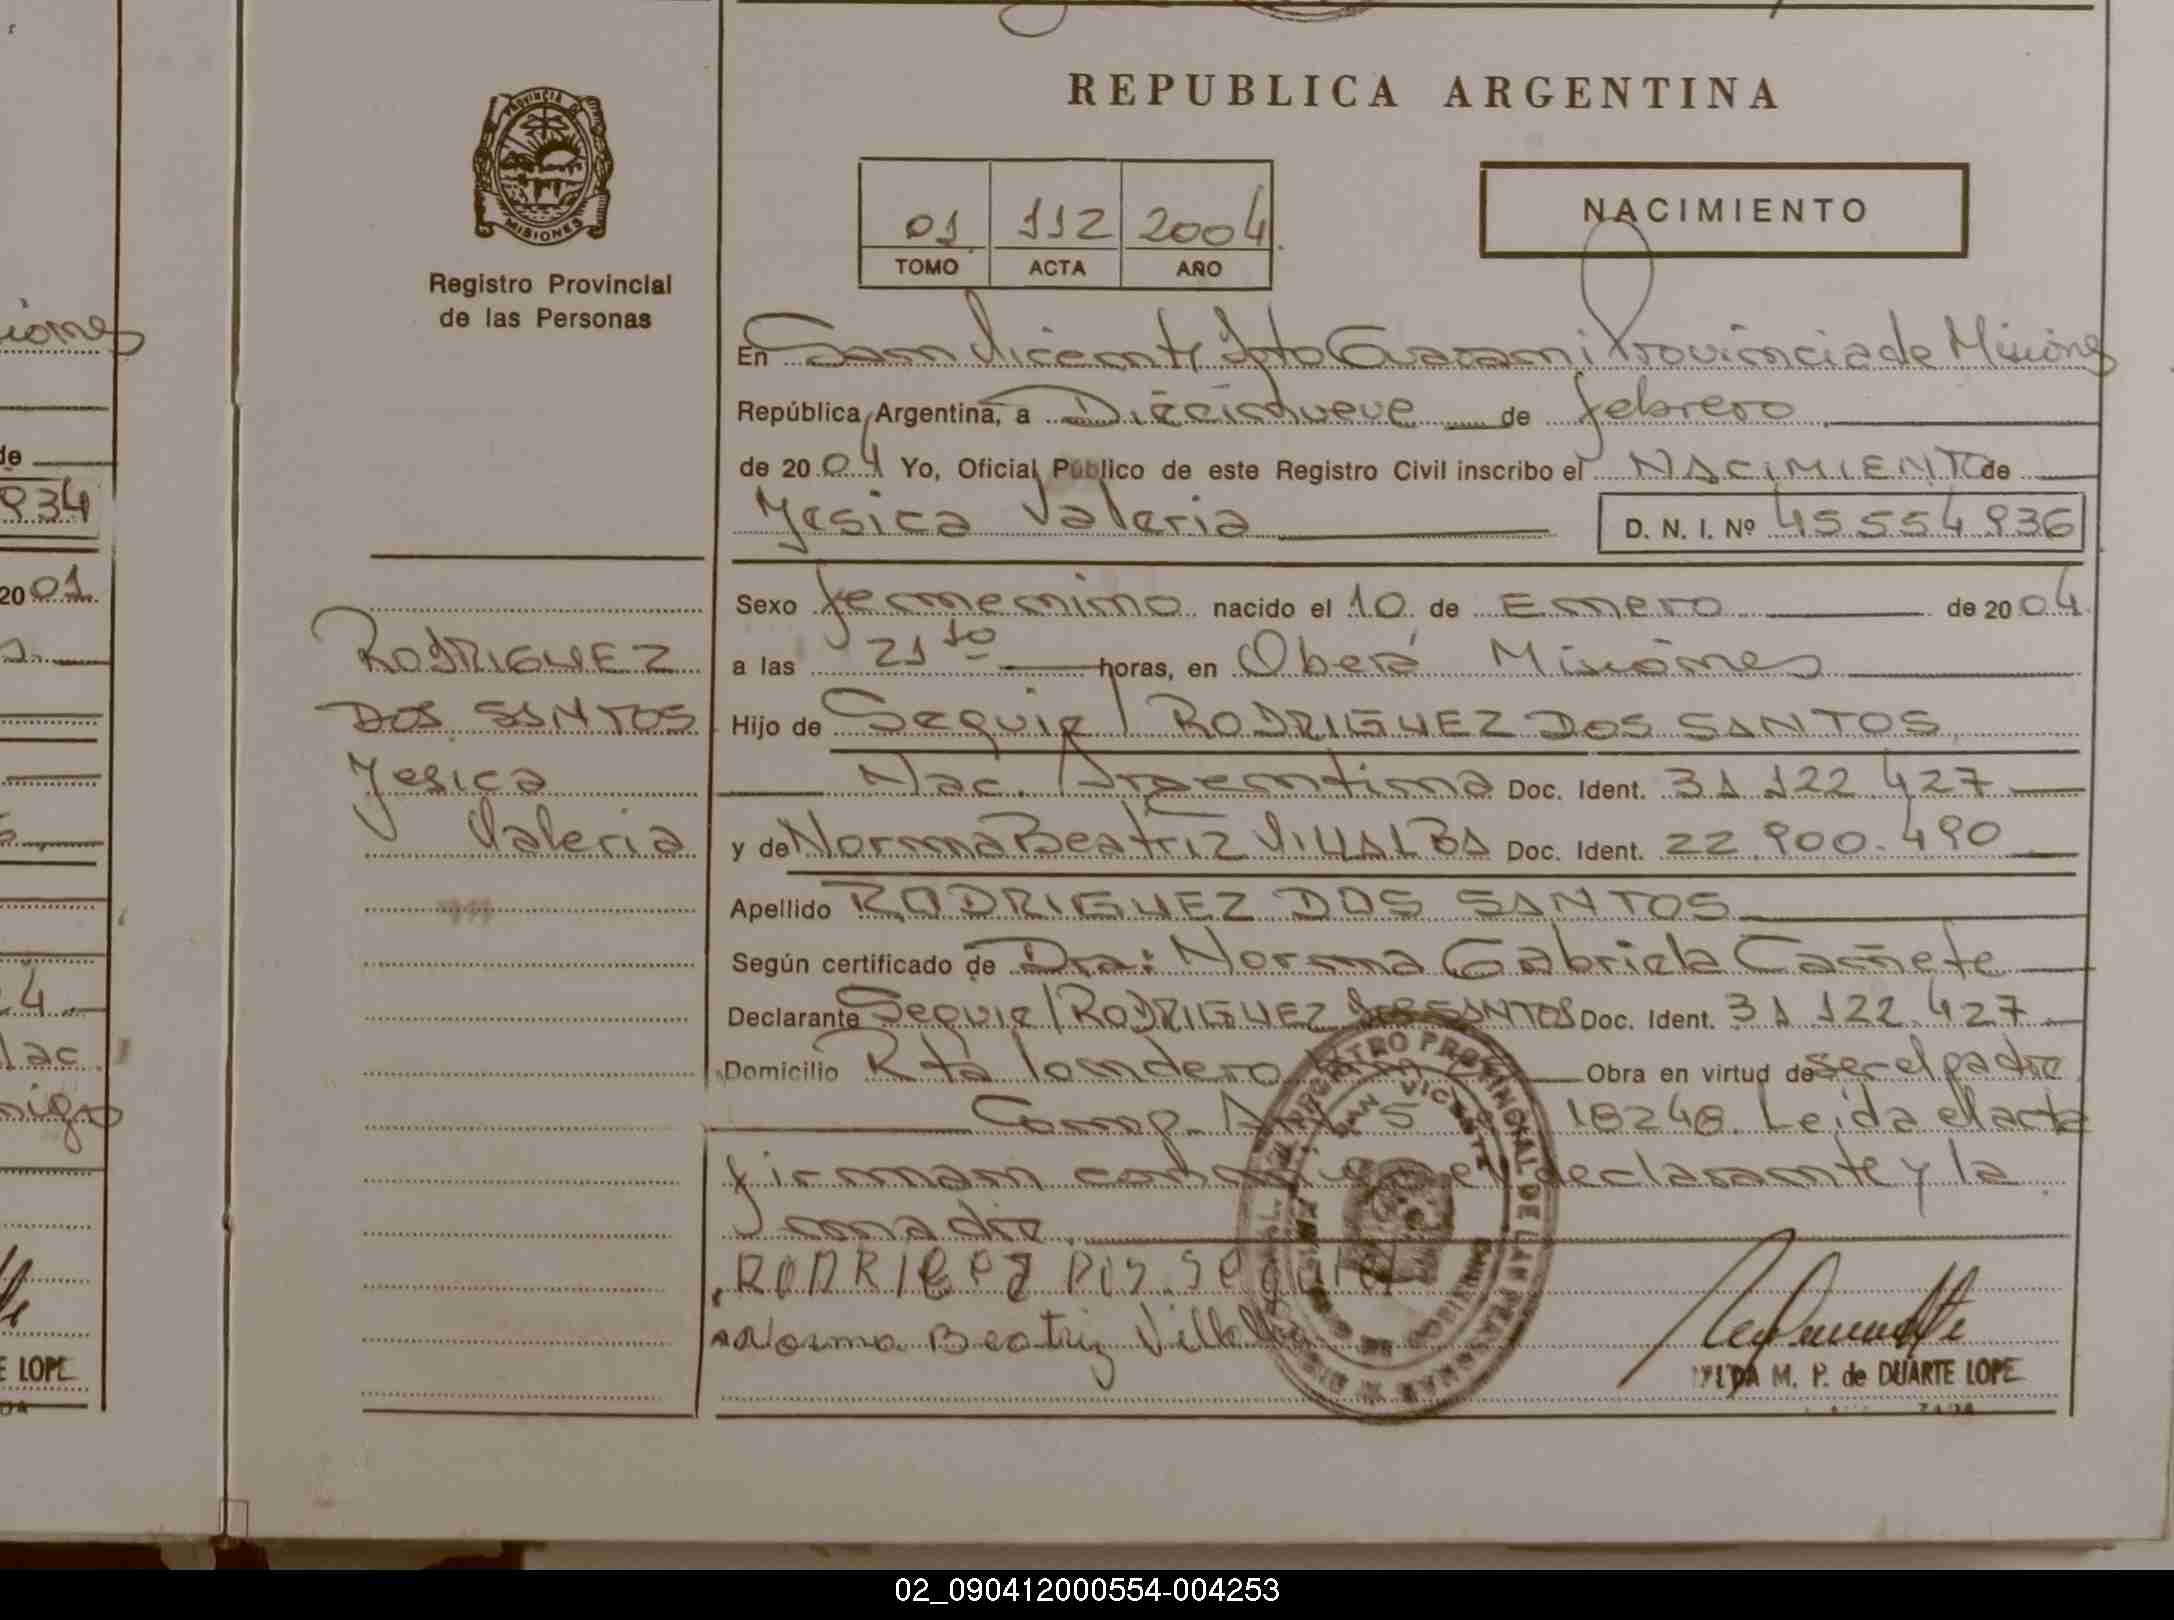 REPUBLICA ARGENTINA
PROVINCIA DE
MISIONES
Registro Provincial
de las Personas
01 112 2004
TOMO ACTA AÑO
NACIMIENTO
En San Vicente Dpto Guarani Provincia de Misiones
República Argentina, a Diecinueve de febrero
de 2004 Yo, Oficial Público de este Registro Civil inscribo el NACIMIENTO de
Yesica Valeria D. N. I. Nº 45.554.936
Sexo femenino nacido el 10 de Enero de 2004
a las 21 10 horas, en Oberá Misiones
Hijo de Sequiel RODRIGUEZ DOS SANTOS
Nac. Argentina Doc. Ident. 31 122 427
y de Norma Beatriz VILLALBA Doc. Ident. 22.900.490
Apellido RODRIGUEZ DOS SANTOS
Según certificado de Dra: Norma Gabriela Cañete
Declarante Sequiel RODRIGUEZ DOS SANTOS Doc. Ident. 31 122 427
Domicilio Obra en virtud de ser el padre
Comp. 18248. Leida el acta
firman conmigo el declarante y la
madre.
Norma Beatriz Villalba
M. P. de DUARTE LOPE
RODRIGUEZ
DOS SANTOS
Yesica
Valeria
REGISTRO PROVINCIAL DE LAS PERSONAS
SAN VICENTE
iones
de
934
2001
4
lac.
nigo
E LOPE
02_090412000554-004253